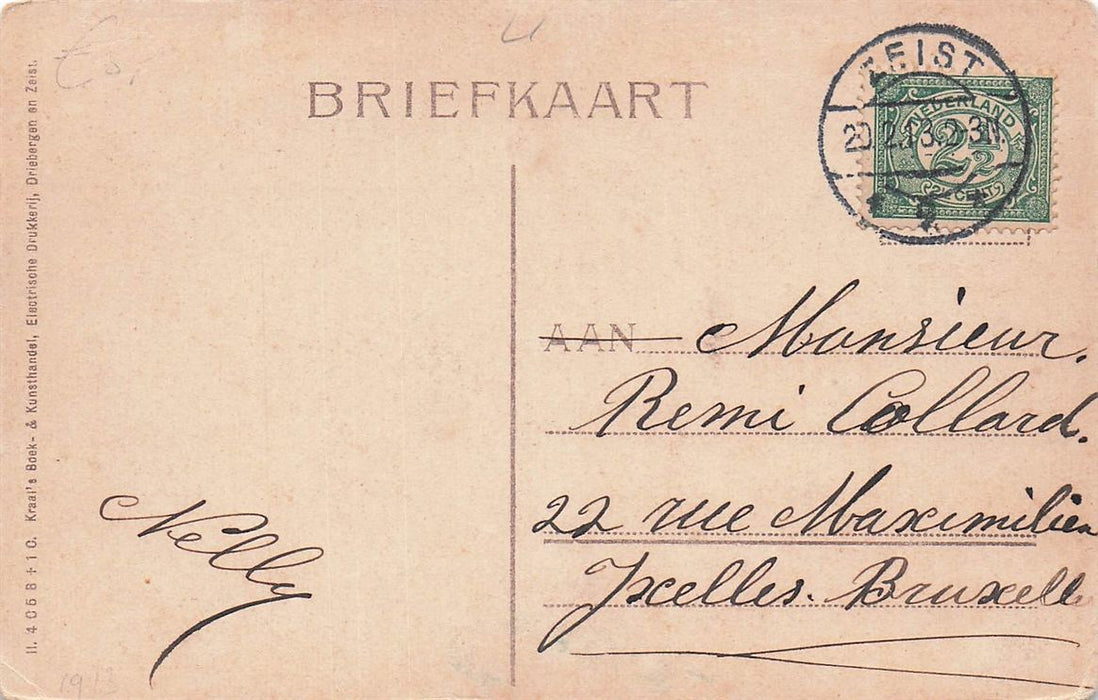 BRIEFKAART
ZEIST
20.2.13.2-3N.
NEDERLAND
2½
2½ CENT
AAN Monsieur.
Remi Collard.
22 rue Maximilien
Ixelles. Bruxelle
Nelly
1913
Kraal's Boek- & Kunsthandel, Electrische Drukkerij, Driebergen en Zeist.